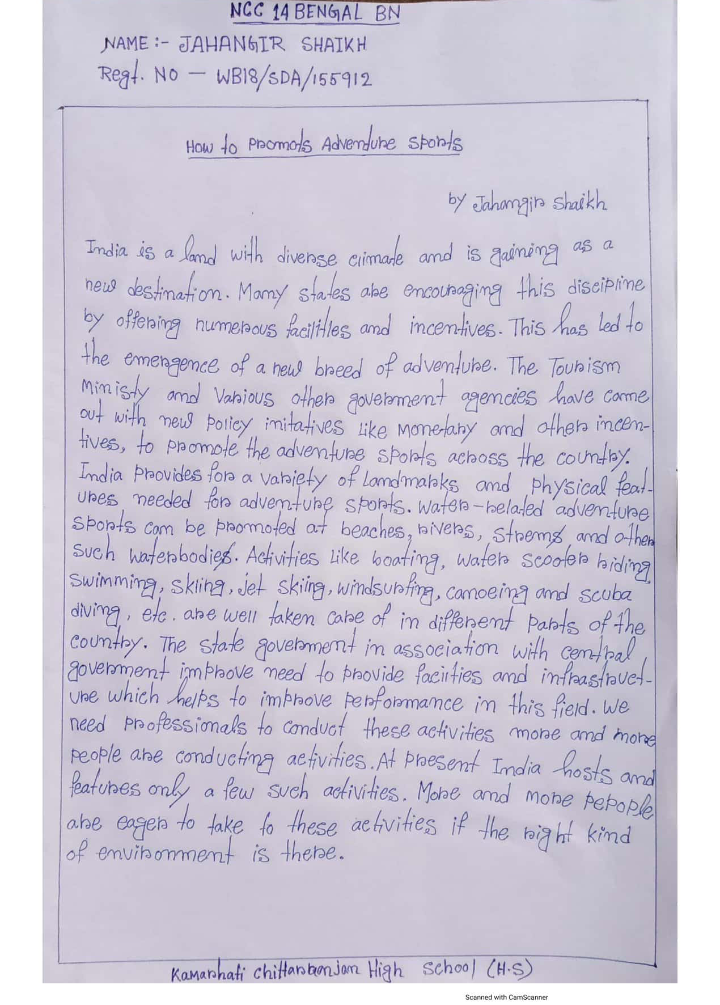 NCC 14 BENGAL BN
NAME :- JAHANGIR SHAIKH
Regt. NO — WB18/SDA/155912
How to Promots Adventure Sports
by Jahangir Shaikh
India is a land with diverse climate and is gaining as a
new destination. Many states are encouraging this discipline
by offering numerous facilities and incentives. This has led to
the emergence of a new breed of adventure. The Tourism
Ministy and Various other government agencies have come
out with new Policy initatives like Monetary and other incen-
tives, to promote the adventure sports across the country.
India Provides for a variety of Landmarks and Physical feat-
ures needed for adventure sports. Water-related adventure
sports can be promoted at beaches, rivers, strems and other
such waterbodies. Activities like boating, water scooter riding,
swimming, skiing, jet skiing, windsurfing, canoeing and scuba
diving, etc. are well taken care of in different parts of the
country. The state government in association with central
government improve need to provide faciities and infrastruct-
ure which helps to improve performance in this field. We
need Professionals to conduct these activities more and more
people are conducting activities. At Present India hosts and
features only a few such activities. More and more pepople
are eager to take to these activities if the right kind
of environment is there.
Kamarhati Chittaranjan High School (H.S)
Scanned with CamScanner